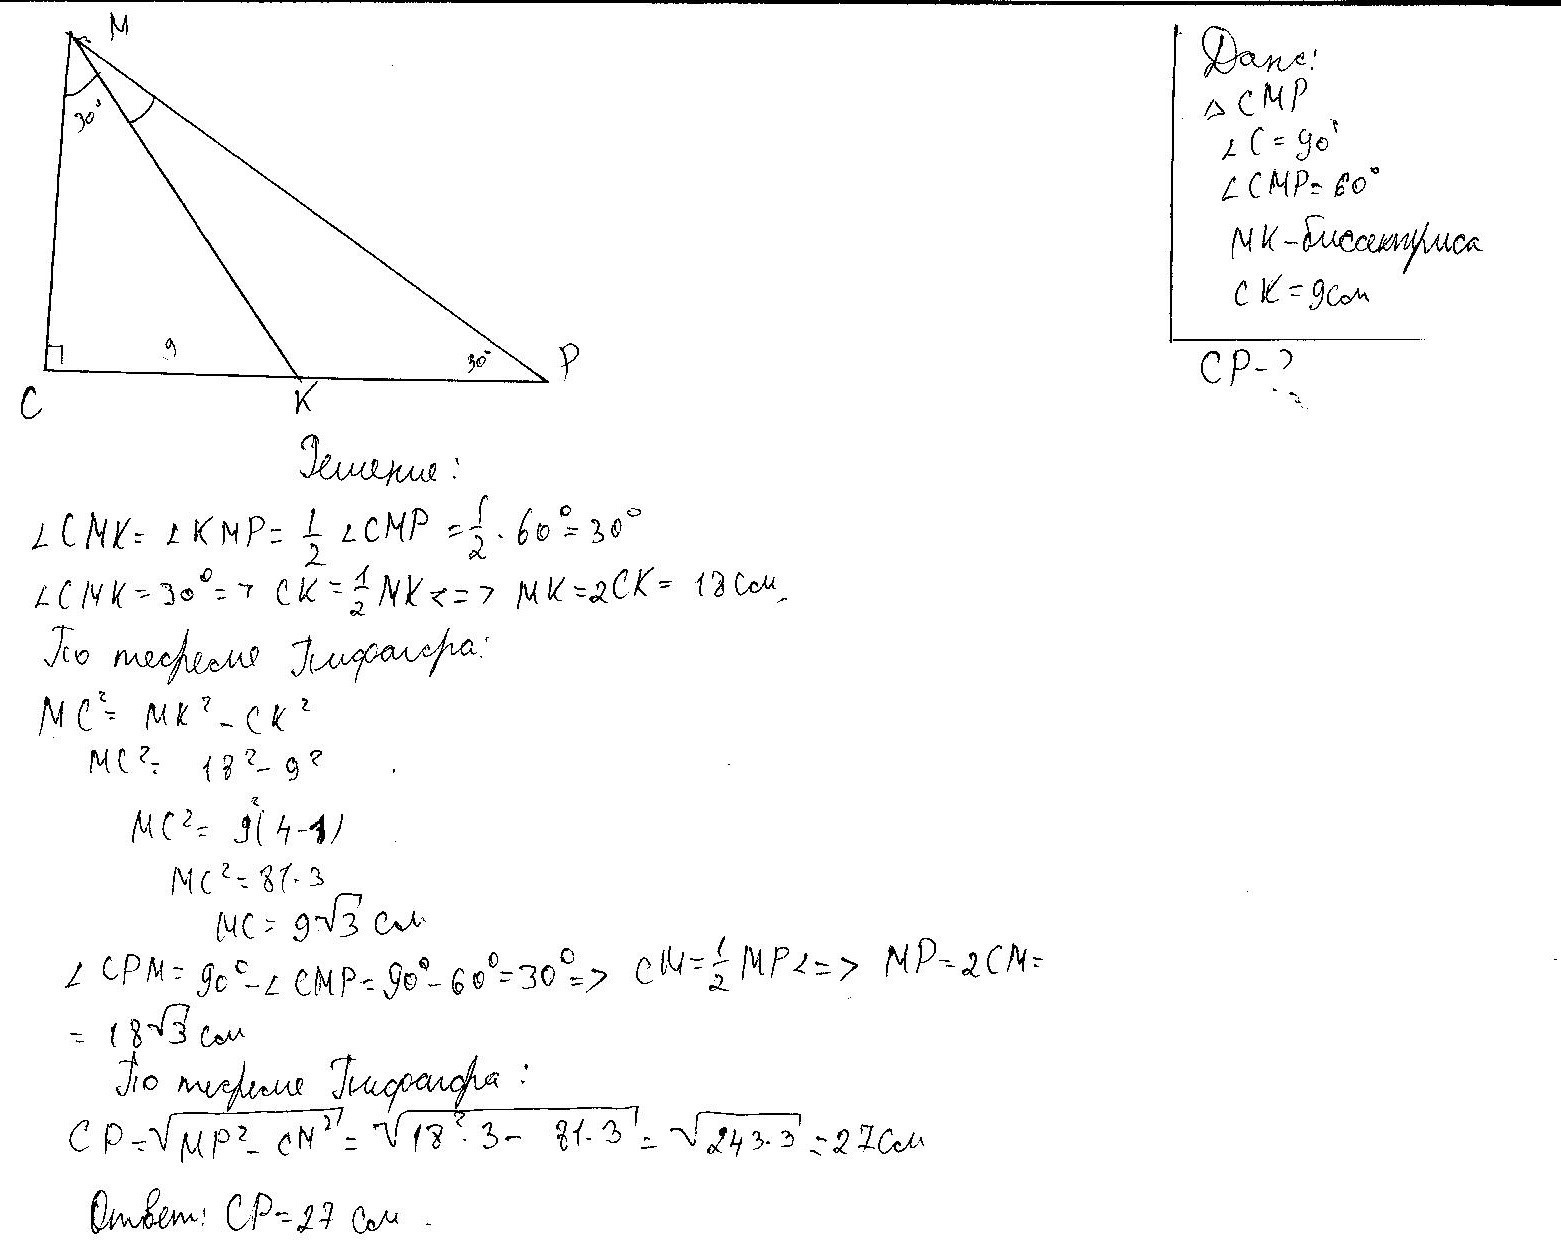 M
30°
9
30°
P
C
K
Дано:
△ CMP
∠C = 90°
∠CMP = 60°
MK - биссектриса
CK = 9см
CP - ?
Решение:
∠CMK = ∠KMP = 1/2 ∠CMP = 1/2 · 60° = 30°
∠CMK = 30° => CK = 1/2 MK <=> MK = 2CK = 18 см.
По теореме Пифагора:
MC² = MK² - CK²
MC² = 18² - 9²
MC² = 9²(4-1)
MC² = 81·3
MC = 9√3 см
∠CPM = 90° - ∠CMP = 90° - 60° = 30° => CM = 1/2 MP <=> MP = 2CM =
= 18√3 см
По теореме Пифагора:
CP = √(MP² - CM²) = √(18²·3 - 81·3) = √(243·3) = 27 см
Ответ: CP = 27 см.